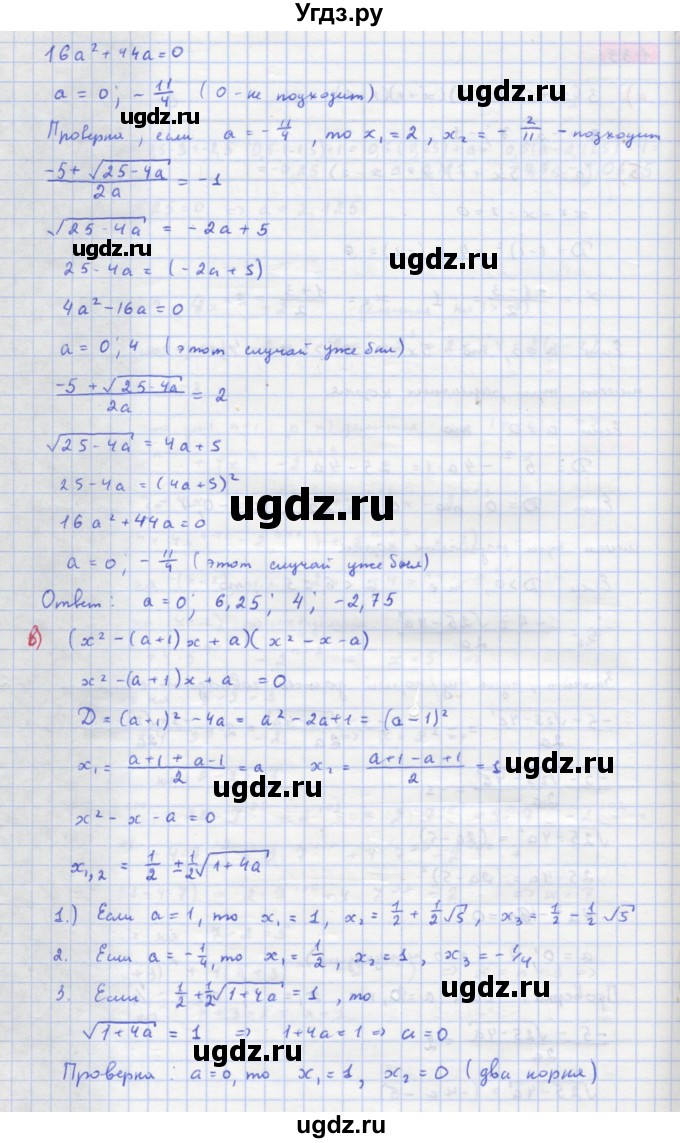 Угдз.ру
16a² + 44a = 0
a = 0; -11/4 (0 - не подходит)
ugdz.ru
ugdz.ru
Проверка, если a = -11/4, то x₁ = 2, x₂ = -2/11 - подходит
(-5 + √(25 - 4a))/2a = -1
√(25 - 4a) = -2a + 5
ugdz.ru
ugdz.ru
25 - 4a = (-2a + 5)
4a² - 16a = 0
a = 0; 4 (этот случай уже был)
(-5 + √(25 - 4a))/2a = 2
√(25 - 4a) = 4a + 5
25 - 4a = (4a + 5)²
ugdz.ru
16a² + 44a = 0
a = 0; -11/4 (этот случай уже был)
Ответ: a = 0; 6,25; 4; -2,75
в) (x² - (a+1)x + a)(x² - x - a)
ugdz.ru
x² - (a+1)x + a = 0
D = (a+1)² - 4a = a² - 2a + 1 = (a - 1)²
x₁ = (a+1+a-1)/2 = a x₂ = (a+1-a+1)/2 = 1
ugdz.ru
ugdz.ru
x² - x - a = 0
x₁,₂ = 1/2 ± 1/2√(1+4a)
1.) Если a = 1, то x₁ = 1, x₂ = 1/2 + 1/2√5, x₃ = 1/2 - 1/2√5
2. Если a = -1/4, то x₁ = 1/2, x₂ = 1, x₃ = -1/4
3. Если 1/2 + 1/2√(1+4a) = 1, то
√(1+4a) = 1 ⇒ 1+4a = 1 ⇒ a = 0
ugdz.ru
Проверка: a = 0, то x₁ = 1, x₂ = 0 (два корня)
ugdz.ru